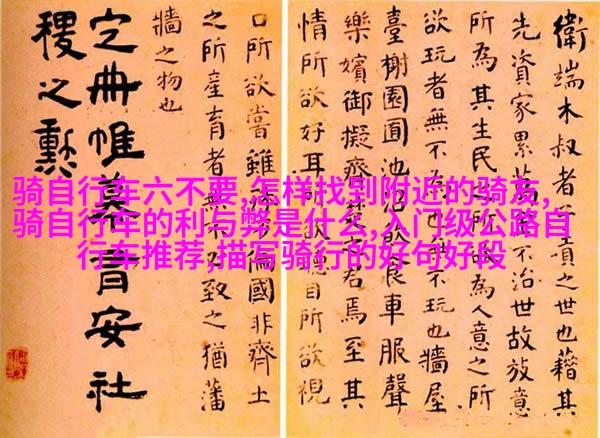 衛端木叔者子貢之世也藉其
先資家累萬金不治世故放意
所為其生民所欲為人意之所
欲玩者無不為也無不玩也牆屋
臺榭園囿池沼飲食車服聲
樂嬪御擬齊楚之君焉至其
情所欲好耳所欲聽目所欲視
口所欲嘗雖殊方偏國非齊土
之所產育者無不致之猶藩
牆之物也
定冊帷幕有安社
稷之勳
骑自行车六不要,怎样找到附近的骑友,
骑自行车的利与弊是什么,入门级公路自
行车推荐,描写骑行的好句好段